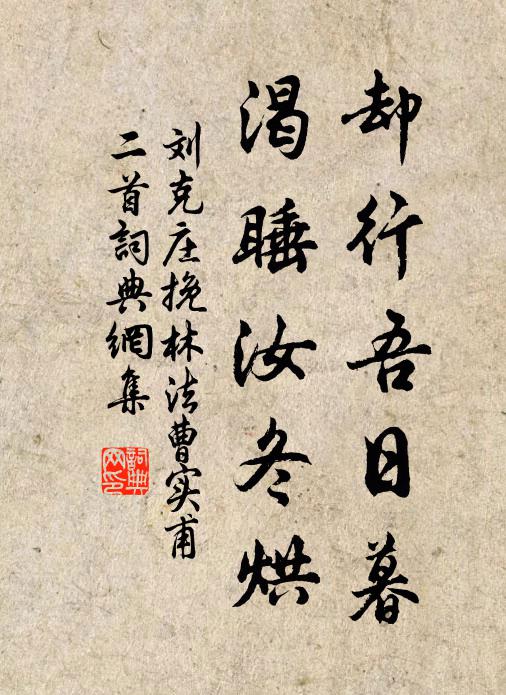 却行吾日暮
渴睡汝冬烘
刘克庄挽林法曹实甫
二首詞典網集
詞典
网印